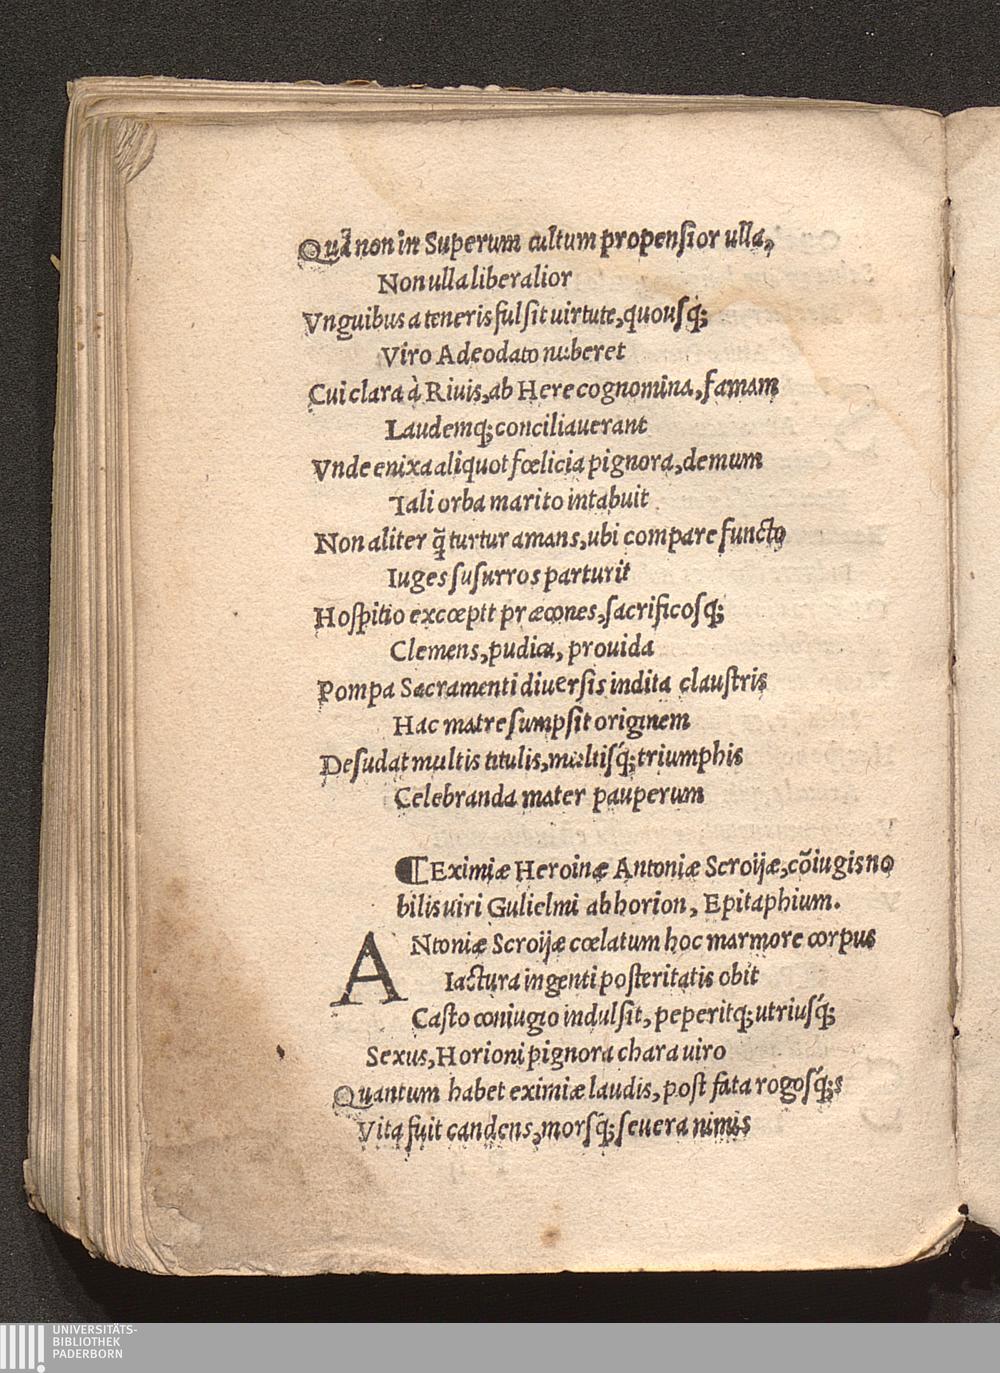 Quã non in Superum cultum propensior ulla,
Non ulla liberalior
Vnguibus a teneris fulsit uirtute, quousq́;
Viro Adeodato nuberet
Cui clara à Riuis, ab Here cognomina, famam
Laudemq; conciliauerant
Vnde enixa aliquot fœlicia pignora, demum
Tali orba marito intabuit
Non aliter q̃ turtur amans, ubi compare functo
Iuges susurros parturit
Hospitio excœpit præcones, sacrificosq;
Clemens, pudica, prouida
Pompa Sacramenti diuersis indita claustris
Hac matre sumpsit originem
Desudat multis titulis, multisq́; triumphis
Celebranda mater pauperum
¶ Eximiæ Heroinæ Antoniæ Scroijæ, cõiugis no
bilis uiri Gulielmi ab horion, Epitaphium.
ANtoniæ Scroijæ cœlatum hoc marmore corpus
Iactura ingenti posteritatis obit
Casto coniugio indulsit, peperitq; utriusq́;
Sexus, Horioni pignora chara uiro
Quantum habet eximiæ laudis, post fata rogosq́;s
Vita fuit candens, morsq́; seuera nimis
UNIVERSITÄTS-
BIBLIOTHEK
PADERBORN